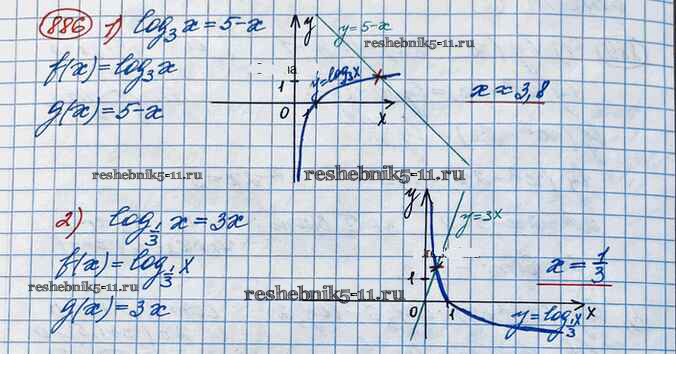 886 1) log₃x = 5-x
f(x) = log₃x
g(x) = 5-x
y
y=5-x
reshebnik5-11.ru
y=log₃x
1
0
1
x
x ≈ 3,8
reshebnik5-11.ru
reshebnik5-11.ru
2) log_{1/3} x = 3x
f(x) = log_{1/3} x
reshebnik5-11.ru
g(x) = 3x
y
y=3x
1
reshebnik5-11.ru
0
1
y=log_{1/3} x
x
x = 1/3